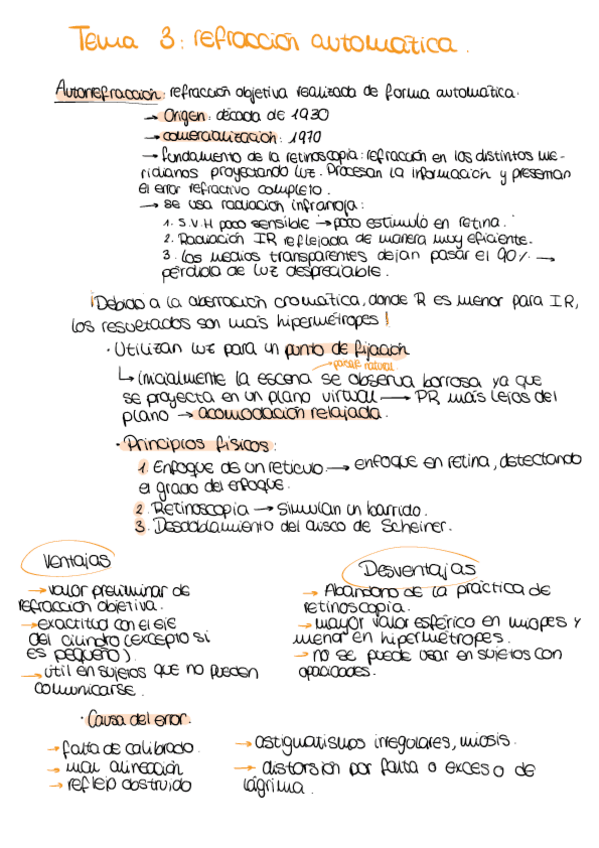 Tema 3: refracción automática.
Autorrefracción: refracción objetiva realizada de forma automática.
→ Origen: década de 1930
→ comercialización: 1970
→ fundamento de la retinoscopia: refracción en los distintos me-
ridianos proyectando luz. Procesan la información y presentan
el error refractivo completo.
→ se usa radiación infrarroja:
1. S.V.H poco sensible → poco estímulo en retina.
2. Radiación IR reflejada de manera muy eficiente.
3. Los medios transparentes dejan pasar el 90% →
pérdida de luz despreciable.
¡Debido a la aberración cromática, donde R es menor para IR,
los resultados son más hipermétropes!
· Utilizan luz para un punto de fijación
→ paisaje natural
↳ inicialmente la escena se observa borrosa ya que
se proyecta en un plano virtual → PR más lejos del
plano → acomodación relajada.
· Principios físicos:
1. Enfoque de un retículo → enfoque en retina, detectando
el grado del enfoque.
2. Retinoscopía → simulan un barrido.
3. Desdoblamiento del disco de Scheiner.
Ventajas
→ valor preliminar de
refracción objetiva.
→ exactitud con el eje
del cilindro (excepto si
es pequeño).
→ útil en sujetos que no pueden
comunicarse.
Desventajas
→ Abandono de la práctica de
retinoscopía.
→ mayor valor esférico en miopes y
menor en hipermétropes.
→ no se puede usar en sujetos con
opacidades.
· Causa del error.
→ falta de calibrado.
→ mal alineación
→ reflejo obstruido
→ astigmatismos irregulares, miosis.
→ distorsión por falta o exceso de
lágrima.